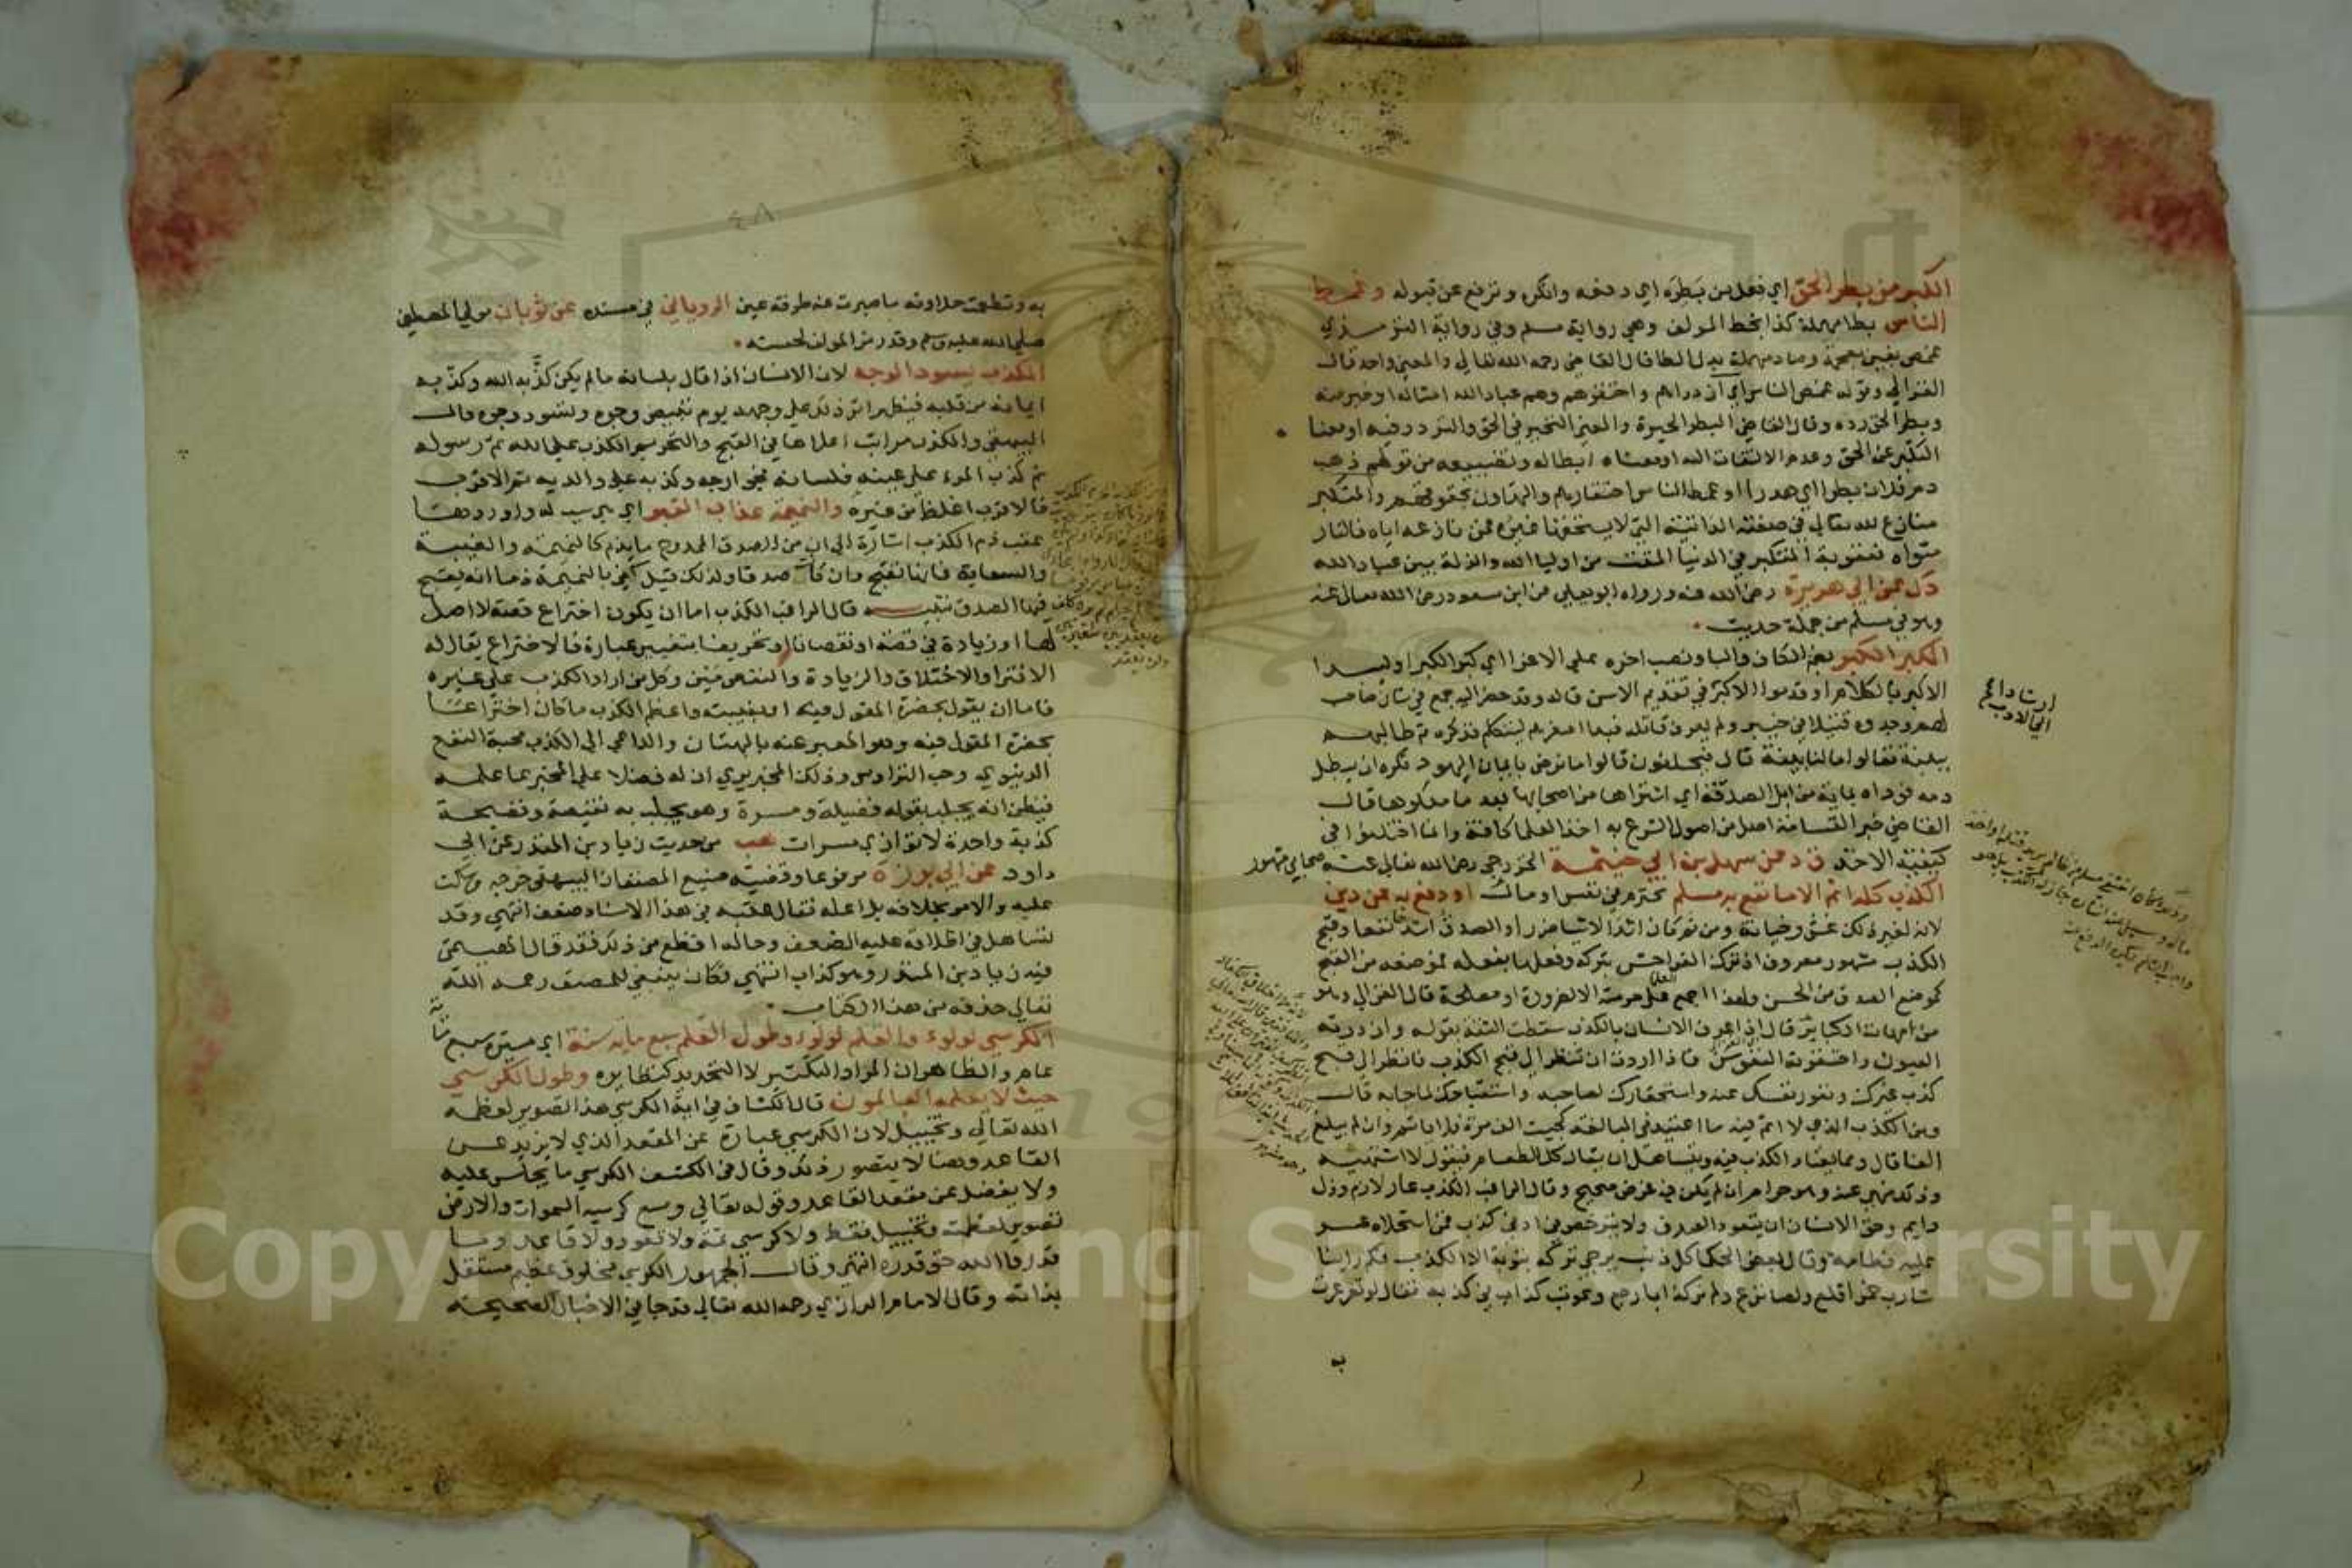 الكبر من بطر الحق اي فعل من بطره اي دفعه وانكره وترفع عن قبوله وغمط
الناس بطا مهملة كذا بخط المولف وهي رواية مسلم وفي رواية الترمذي
غمص بغين معجمة وصاد مهملة بدل الطا قال القاضي رحمه الله تعالي والمعني واحد قال
الغزالي وقوله غمص الناس اي ازدراهم واحتقرهم وهم عباد الله امثاله او خير منه
وبطر الحق رده وقال القاضي البطر الحيرة والمعني التحير في الحق والتردد فيه او معنا
التكبر عن الحق وعدم الالتفات اليه او معناه ابطاله وتضييعه من قولهم ذهب
دم فلان بطرا اي هدرا او غمط الناس احتقارهم والتهاون بحقوقهم والمتكبر
منازع لله تعالي في صفته الذاتية التي لا يستحقها غيره فمن نازعه اياه فالنار
مثواه فعقوبة المتكبر في الدنيا المقت من اوليا الله والذلة بين عباد الله
د ك عن ابي هريرة رضي الله عنه ورواه ابو يعلي عن ابن مسعود رضي الله تعالي عنه
وهو في مسلم من جملة حديث
الكبر الكبر بضم الكاف والبا ونصب اخره علي الاغرا اي كبر الكبر او ليبدا
الاكبر بالكلام او قدموا الاكبر في تقديم الاسن قاله وقد حضر اليه جمع في شان صاحب
لهم وجدوه قتيلا في خيبر ولم يعرف قاتله فبدا اصغرهم ليتكلم فذكره ثم طالبهم
ببينة فقالوا ما لنا بينة قال فيحلفون قالوا ما نرضي بايمان اليهود فكره ان يبطل
دمه فوداه بماية من ابل الصدقة اي اشتراها من اصحابها بعد ما ملكوها قال
القاضي خبر القسامة اصل من اصول الشرع به اخذ العلما كافة وانما اختلفوا في
كيفية الاخذ ق د عن سهل بن ابي حيثمة الخزرجي رضي الله تعالي عنه صحابي مشهور
الكذب كله اثم الا ما نفع به مسلم محترم في نفس او مال او دفع به عن دين
لانه لغير ذلك غش وخيانة ومن ثم كان اشد الاشيا ضررا والصدق اشدها نفعا وقبح
الكذب مشهور معروف اذ ترك الفواحش بتركه وفعلها بفعله فموضعه من القبح
كموضع الصدق من الحسن ولهذا اجمع العلما علي حرمته الا لضرورة او مصلحة قال الغزالي وهو
من امهات الكباير قال اذا عرف الانسان بالكذب سقطت الثقة بقوله وازدرته
العيون واحتقرته النفوس فاذا اردت ان تنظر الي قبح الكذب فانظر الي قبح
كذب غيرك ونفور نفسك عنه واستحقارك لصاحبه واستقباحك لما جا به قال
ومن الكذب الذي لا اثم فيه ما اعتيد في المبالغة كجيت الف مرة فلا ياثم وان لم يبلغ
الفا قال ومما يعتاد الكذب فيه ويتساهل ان يقال كل الطعام فيقول لا اشتهيه
وذلك منهي عنه وهو حرام ان لم يكن في غرض صحيح وقال الراغب الكذب عار لازم وذل
دايم وحق الانسان ان يتعود الصدق ولا يترخص في ادني كذب فمن استحلاه عسر
عليه فطامه وقال بعض الحكما كل ذنب يرجي تركه بتوبة الا الكذب فكم راينا
شارب خمر اقلع ولصا نزع ولم نر كذابا رجع وعوتب كذاب في كذبه فقال لو تغرغرت
به
ارشاد
الي الادب
٤٨
به وتطعمت حلاوته ما صبرت عنه طرفة عين الروياني في مسنده عن ثوبان مولي المصطفي
صلي الله عليه وسلم وقد رمز المولف لحسنه
الكذب يسود الوجه لان الانسان اذا قال بلسانه ما لم يكن كذبه الله وكذبه
ايمانه من قلبه فيظهر اثر ذلك علي وجهه يوم تبيض وجوه وتسود وجوه قال
البيهقي والكذب مراتب اعلاها في القبح والتحريم الكذب علي الله ثم رسوله
ثم كذب المرء علي عينه فلسانه فجوارحه وكذبه علي والديه ثم الاقرب
فالاقرب اغلظ من غيره والنميمة عذاب القبر اي هي سبب له واوردها
عقب ذم الكذب اشارة الي ان من الصدق الممدوح ما يذم كالنميمة والغيبة
والسعاية فانها تقبح وان كانت صدقا ولذلك قيل كفي بالنميمة ذما انه يقبح
فيها الصدق تنبيه قال الراغب الكذب اما ان يكون اختراع قصة لا اصل
لها او زيادة في قصة او نقصانا او تحريفا بتغيير عبارة فالاختراع يقال له
الافترا والاختلاق والزيادة والنقص مين وكل من اراد الكذب علي غيره
فاما ان يقول بحضرة المقول فيه او بغيبته واعظم الكذب ما كان اختراعا
بحضرة المقول فيه وهو المعبر عنه بالبهتان والداعي الي الكذب محبة النفع
الدنيوي وحب التراوس وذلك المخبر يري ان له فضلا علي المخبر بما علمه
فيظن انه يجلب بقوله فضيلة ومسرة وهو يجلب به نقيصة وفضيحة
كذبة واحدة لا توازي مسرات هب من حديث زياد بن المنذر عن ابي
داود عن ابي برزة مرفوعا وقضية صنيع المصنف ان البيهقي خرجه وسكت
عليه والامر بخلافه بل اعله فقال عقبه في هذا الاسناد ضعف انتهي وقد
تساهل في اطلاقه عليه الضعف وحاله افظع من ذلك فقد قال الهيثمي
فيه زياد بن المنذر وهو كذاب انتهي فكان ينبغي للمصنف رحمه الله
تعالي حذفه من هذا الكتاب
الكرسي لولوء والقلم لولوء وطول القلم سبع ماية سنة اي مسيرة سبع ماية
عام والظاهر ان المراد التكثير لا التحديد كنظايره وطول الكرسي
حيث لا يعلمه العالمون قال الكشاف في اية الكرسي هذا تصوير لعظمة
الله تعالي وتخييل لان الكرسي عبارة عن المقعد الذي لا يزيد عن
القاعد وهنا لا يتصور ذلك وقال في الكشف الكرسي ما يجلس عليه
ولا يفضل عن مقعد القاعد وقوله تعالي وسع كرسيه السموات والارض
تصوير لعظمته وتخييل فقط ولا كرسي ثمة ولا قعود ولا قاعد وما
قدروا الله حق قدره انتهي وقال الجمهور الكرسي مخلوق عظيم مستقل
بذاته وقال الامام الرازي رحمه الله تعالي قد جا في الاخبار الصحيحة
Copyright © King Saud University